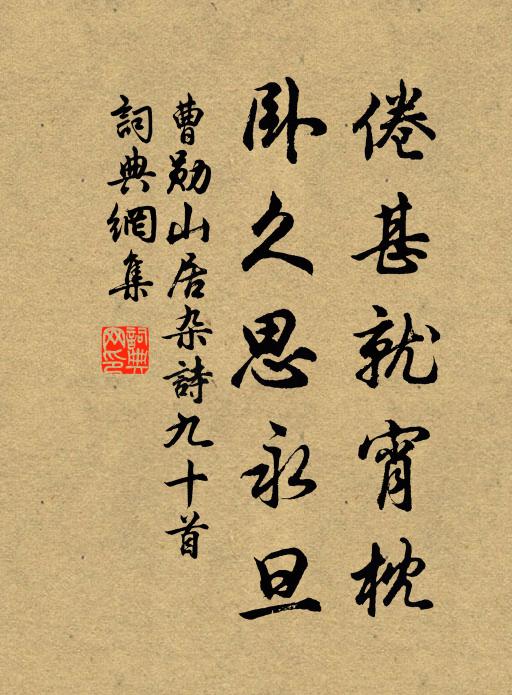 倦甚就宵枕
卧久思永旦
曹勋山居杂詩九十首
詞典網集
詞典网印